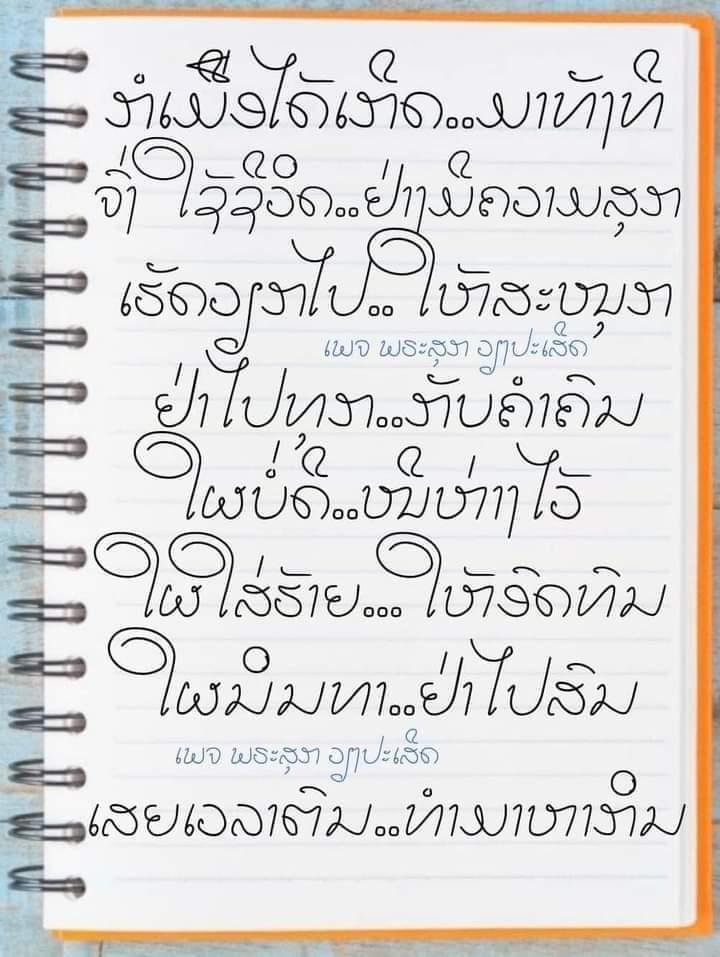 ກໍເມື່ອໄດ້ເກີດ..ມາທັງທີ
ຈົ່ງ ໃຊ້ຊີວິດ..ຢ່າງມີຄວາມສຸກ
ເຮັດວຽກໄປ..ໃຫ້ສະຫນຸກ
ເພຈ ພຣະສຸກ ວຽງປະເສີດ
ຢ່າໄປທຸກ..ກັບຄຳຄົນ
ໃຜບໍ່ດີ..ຫນີຫ່າງໄວ້
ໃຜໃສ່ຮ້າຍ...ໃຫ້ອົດທົນ
ໃຜນິນທາ..ຢ່າໄປສົນ
ເພຈ ພຣະສຸກ ວຽງປະເສີດ
ເສຍເວລາຕົນ..ທຳມາຫາກິນ